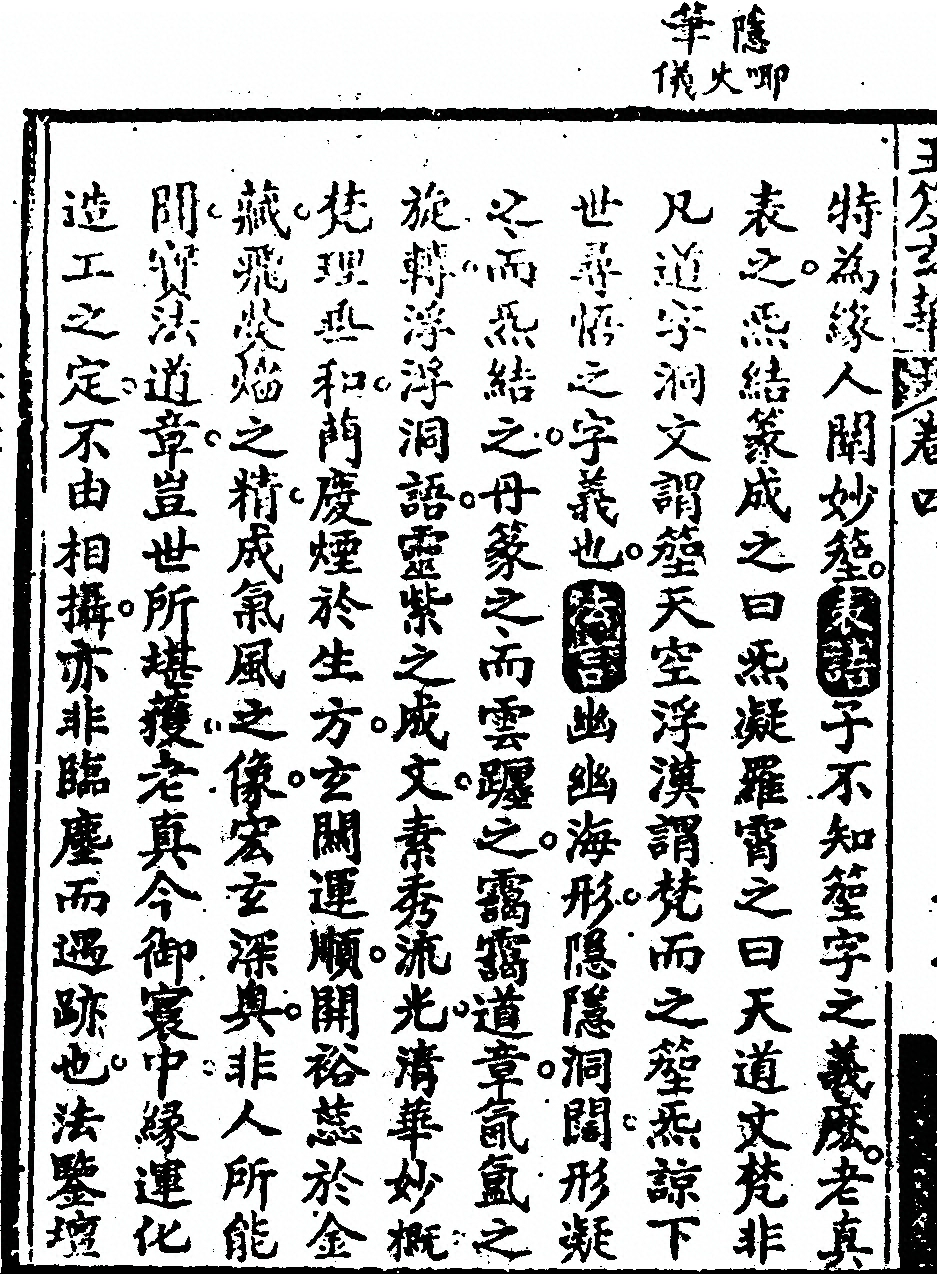 隱唧
筆火儀
特為緣人聞妙筌。表語子不知筌字之義麽。老真
表之。炁結篆成之曰炁凝羅霄之曰天道文梵非
凡道字洞文謂筌天空浮漠謂梵而之筌炁諒下
世尋悟之字義也。玄言幽幽海形。隱隱洞闊形凝
冬而炁結之。丹篆之而雲躔之。靄靄道章。氤氳之
旋轉浮浮洞語。靈紫之成文。素秀流光。清華妙概
梵理無和。蔄慶煙於生方。玄關運順。開裕蕊於金
藏。飛熒焰之精。成氣風之像。宏玄深奧。非人所能
聞。寶法道章。豈世所堪獲。老真今御寰中。緣運化
造工之定。不由相攝。亦非臨塵而遇跡也。法鑒壇
卷四